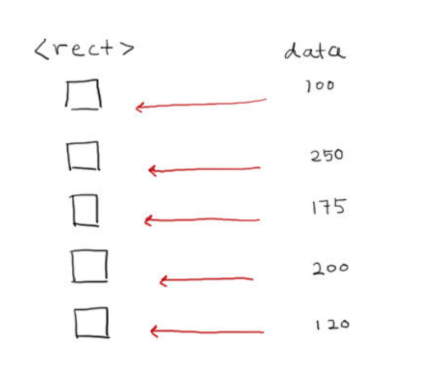 <rect> data
100
250
175
200
120